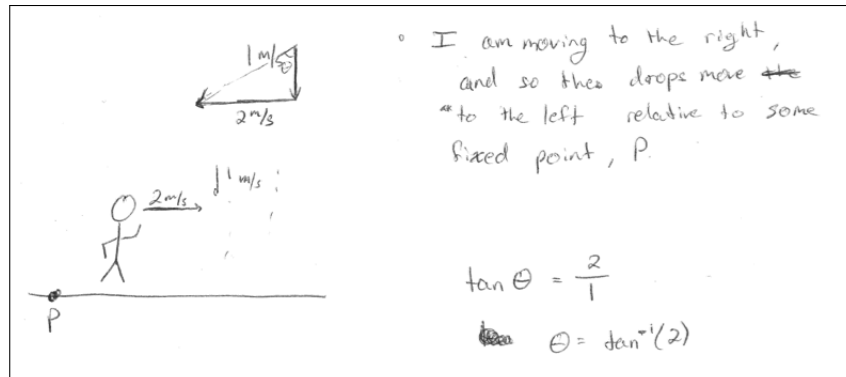 1 m/s θ
2 m/s
2 m/s
1 m/s
P
I am moving to the right,
and so the drops move
to the left relative to some
fixed point, P.
tan θ = 2/1
θ = tan⁻¹(2)